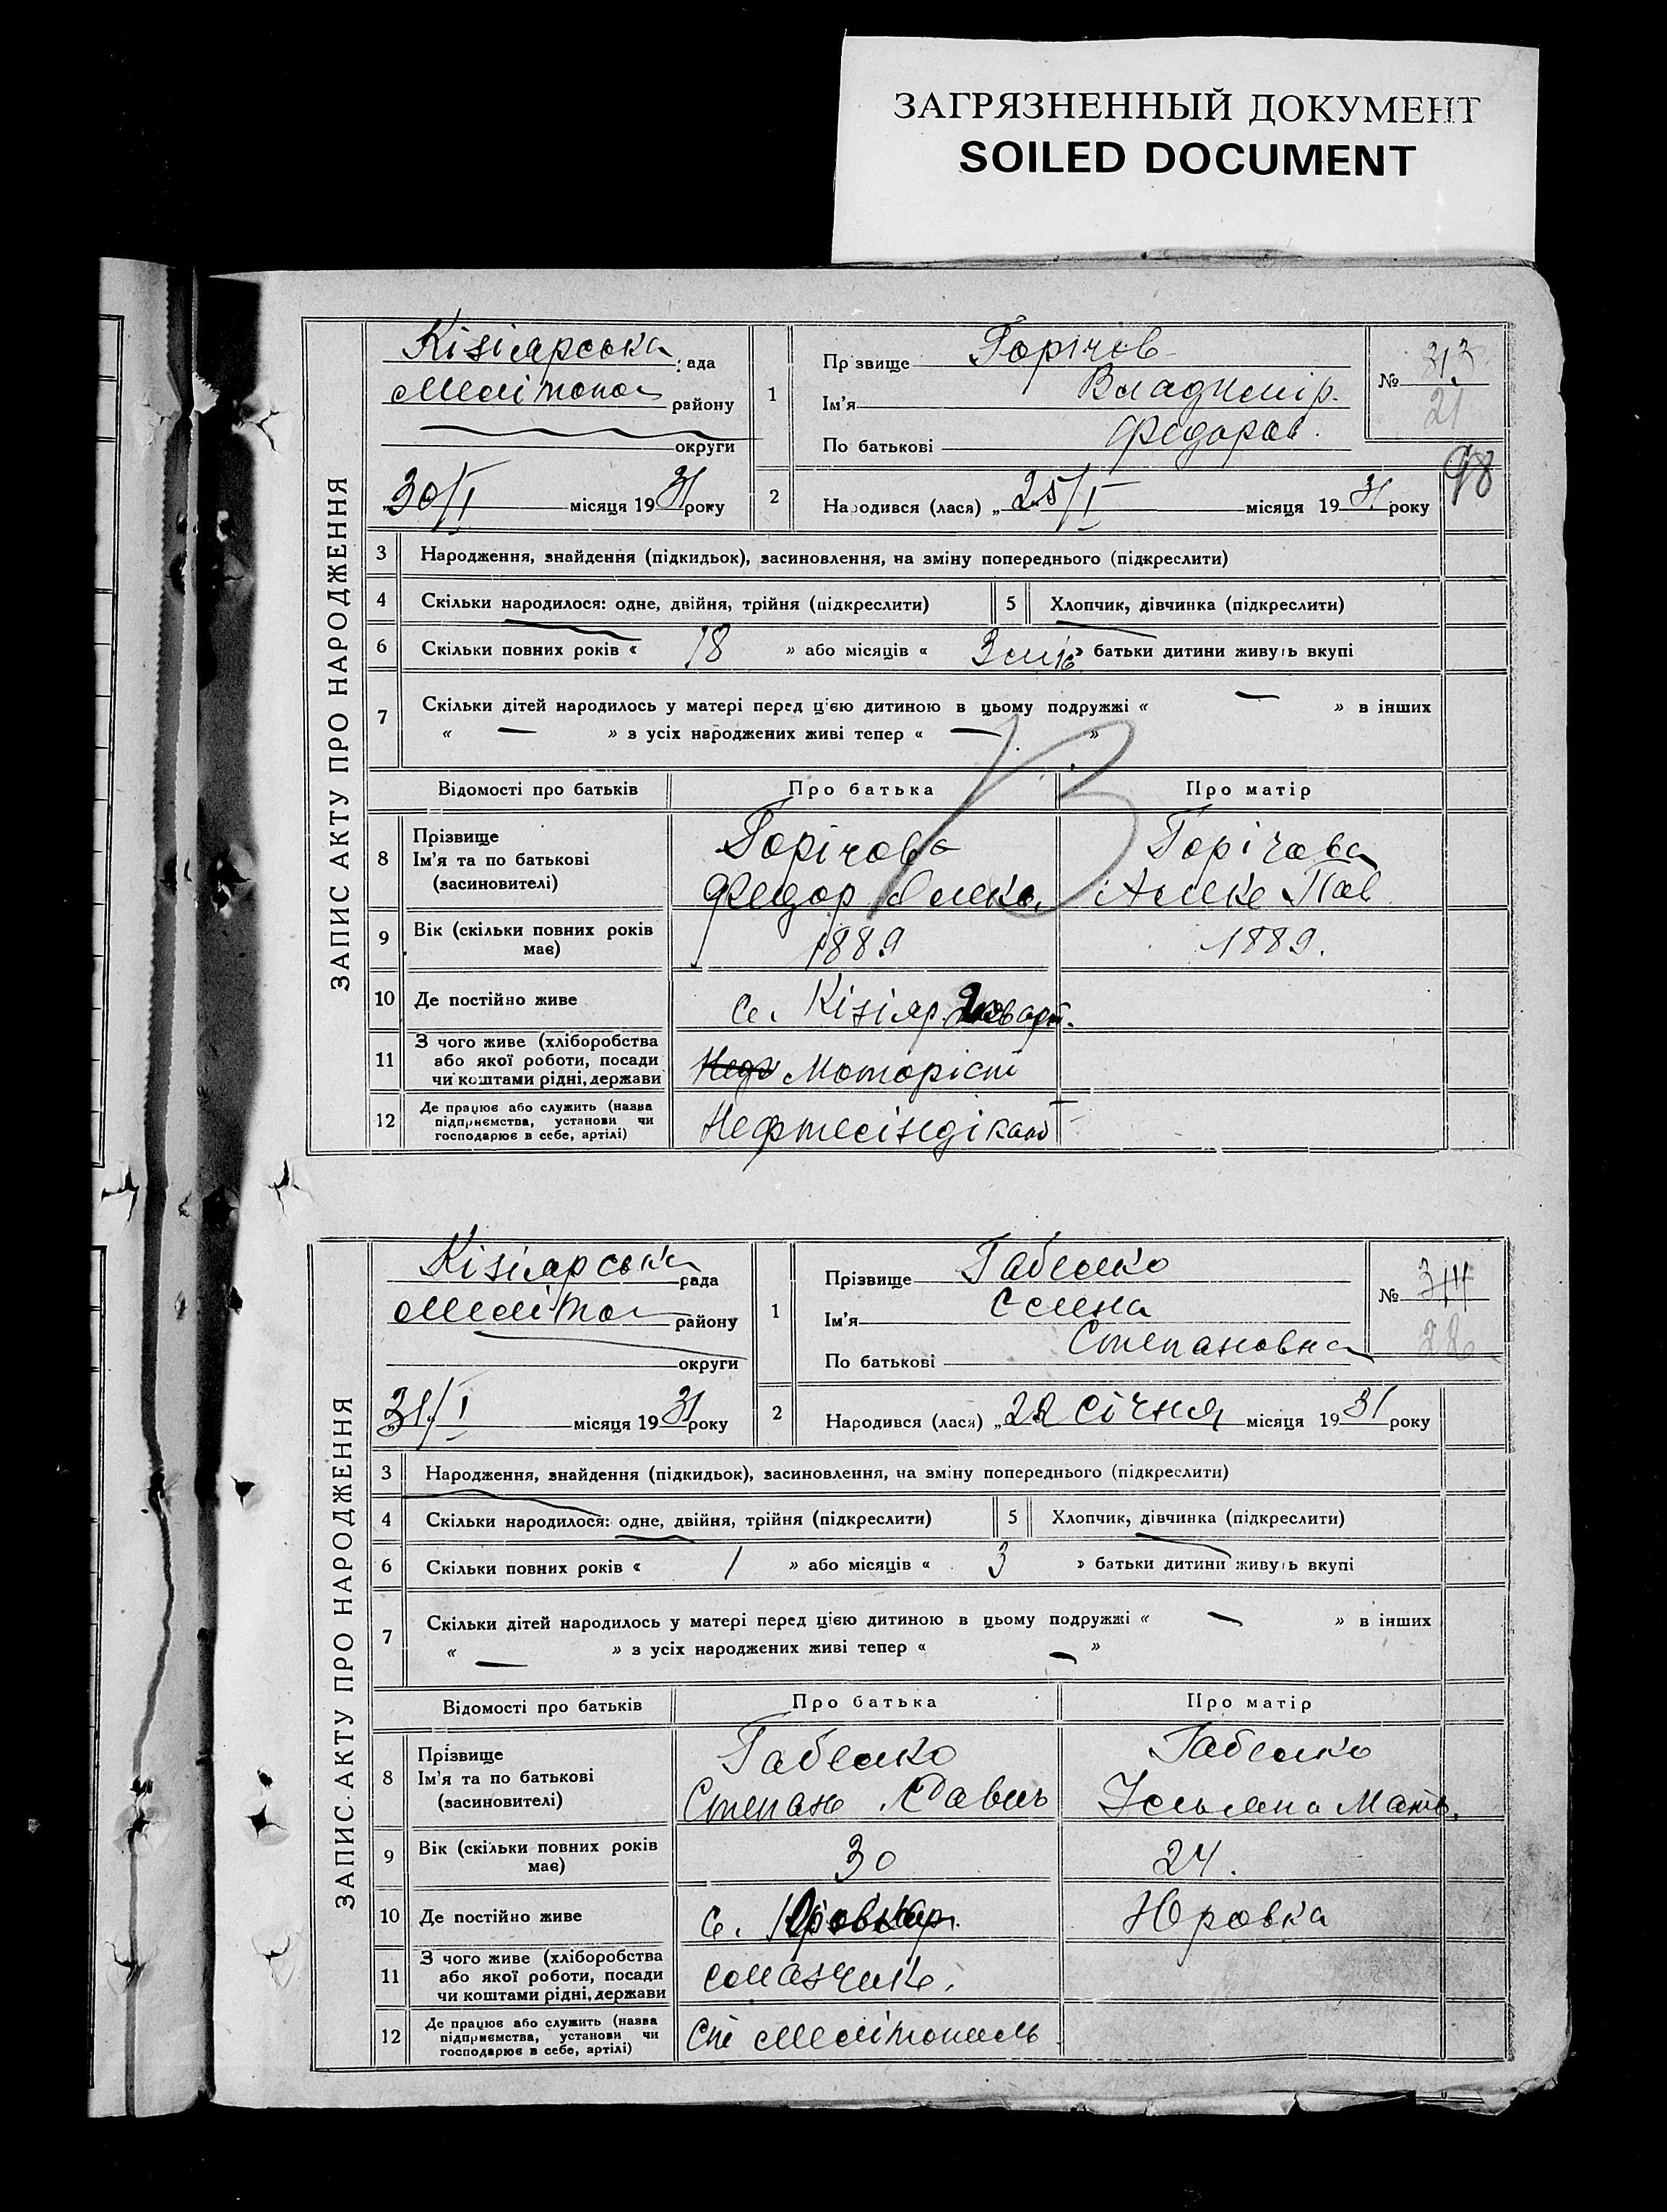 ЗАГРЯЗНЕННЫЙ ДОКУМЕНТ
SOILED DOCUMENT
ЗАПИС АКТУ ПРО НАРОДЖЕННЯ
Кізіярська рада
Мелітопол району
округи
30/I місяця 1931 року
1
Прізвище Горічов
Ім'я Владимір.
По батькові Федоров.
№ 313
21
98
2
Народився (лася) „ 25/I місяця 1931 року
3 Народження, знайдення (підкидьок), засиновлення, на зміну попереднього (підкреслити)
4 Скільки народилося: одне, двійня, трійня (підкреслити) 5 Хлопчик, дівчинка (підкреслити)
6 Скільки повних років « 18 » або місяців « 3 » батьки дитини живуть вкупі
7 Скільки дітей народилось у матері перед цією дитиною в цьому подружжі « — » в інших
« — » з усіх народжених живі тепер « — »
Відомості про батьків Про батька Про матір
8 Прізвище
Ім'я та по батькові
(засиновителі)
Горічов
Федор
Горічова
Пав
9 Вік (скільки повних років має) 1889 1889.
10 Де постійно живе с. Кізіяр.
11 З чого живе (хліборобства
або якої роботи, посади
чи коштами рідні, держави
Моторіст
12 Де працює або служить (назва
підприємства, установи чи
господарює в себе, артілі)
Нефтесіндікат
ЗАПИС АКТУ ПРО НАРОДЖЕННЯ
Кізіярська рада
Мелітоп району
округи
31/I місяця 1931 року
1
Прізвище Габелко
Ім'я Єлена
По батькові Степановна
№ 314
22
2
Народився (лася) „ 22 січня місяця 1931 року
3 Народження, знайдення (підкидьок), засиновлення, на зміну попереднього (підкреслити)
4 Скільки народилося: одне, двійня, трійня (підкреслити) 5 Хлопчик, дівчинка (підкреслити)
6 Скільки повних років « 1 » або місяців « 3 » батьки дитини живуть вкупі
7 Скільки дітей народилось у матері перед цією дитиною в цьому подружжі « — » в інших
« — » з усіх народжених живі тепер « — »
Відомості про батьків Про батька Про матір
8 Прізвище
Ім'я та по батькові
(засиновителі)
Габелко
Степан Давид
Габелко
Ульяна Матв.
9 Вік (скільки повних років має) 30 24.
10 Де постійно живе с. Юровка
11 З чого живе (хліборобства
або якої роботи, посади
чи коштами рідні, держави
12 Де працює або служить (назва
підприємства, установи чи
господарює в себе, артілі)
Ст Мелітополь